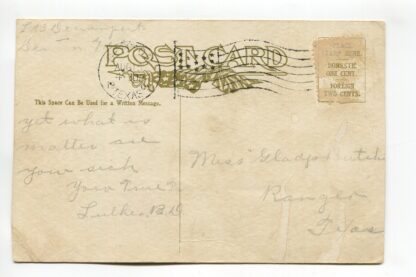 POST CARD
TEXAS
PLACE
STAMP HERE
DOMESTIC
ONE CENT.
FOREIGN
TWO CENTS.
This Space Can Be Used for a Written Message.
yet what is
matter are
your sick
Your True
Luther B.D.
Miss Gladys
Ranger
Texas